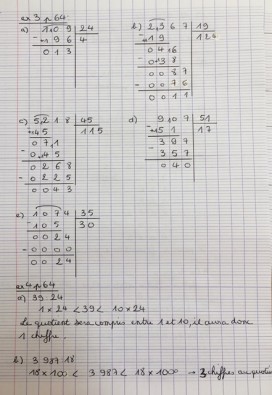 ex 3 p 64
a) 1 0 9 | 24
- 9 6 | 4
0 1 3
b) 2 3 6 7 | 19
- 1 9 | 126... 
0 4 6
- 0 3 8
0 0 8 7
- 0 0 7 6
0 0 1 1
c) 5 2 1 8 | 45
- 4 5 | 1 1 5
0 7 1
- 0 4 5
0 2 6 8
- 0 2 2 5
0 0 4 3
d) 9 0 7 | 51
- 5 1 | 1 7
3 9 7
- 3 5 7
0 4 0
e) 1 0 7 4 | 35
- 1 0 5 | 30
0 0 2 4
- 0 0 0 0
0 0 2 4
ex 4 p 64
a) 39 : 24
1 × 24 < 39 < 10 × 24
Le quotient sera compris entre 1 et 10, il aura donc
1 chiffre.
b) 3 987 : 18
18 × 100 < 3 987 < 18 × 1000 → 3 chiffres au quotient